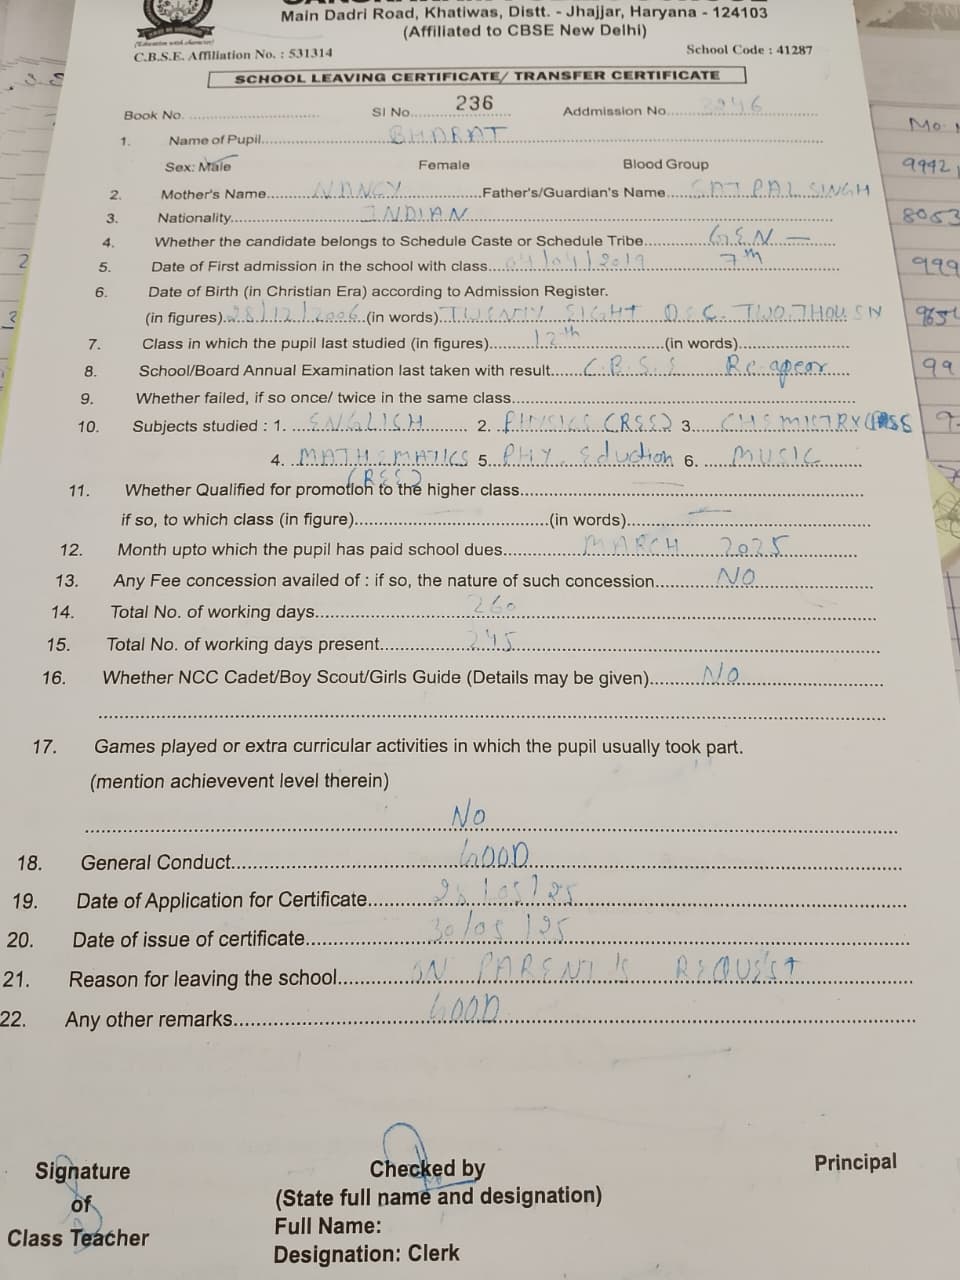 Main Dadri Road, Khatiwas, Distt. - Jhajjar, Haryana - 124103
(Affiliated to CBSE New Delhi)
C.B.S.E. Affiliation No. : 531314 School Code : 41287
SCHOOL LEAVING CERTIFICATE/ TRANSFER CERTIFICATE
Book No. Sl No. 236 Addmission No.
1. Name of Pupil BHARAT
Sex: Male Female Blood Group
2. Mother's Name NANCY Father's/Guardian's Name SATPAL SINGH
3. Nationality INDIAN
4. Whether the candidate belongs to Schedule Caste or Schedule Tribe GEN —
5. Date of First admission in the school with class 04/04/2019 7th
6. Date of Birth (in Christian Era) according to Admission Register.
(in figures) 28/12/2006 (in words) TWENTY EIGHT DEC. TWO THOUSN
7. Class in which the pupil last studied (in figures) 12th (in words)
8. School/Board Annual Examination last taken with result C.B.S.E Re-apear
9. Whether failed, if so once/ twice in the same class
10. Subjects studied : 1. ENGLISH 2. PHYSICS (RES) 3. CHEMISTRY
4. MATHEMATICS 5. PHY. Eduction 6. MUSIC
(RES)
11. Whether Qualified for promotion to the higher class
if so, to which class (in figure) (in words) —
12. Month upto which the pupil has paid school dues MARCH 2025
13. Any Fee concession availed of : if so, the nature of such concession NO
14. Total No. of working days 260
15. Total No. of working days present 245
16. Whether NCC Cadet/Boy Scout/Girls Guide (Details may be given) NO
17. Games played or extra curricular activities in which the pupil usually took part.
(mention achievevent level therein)
No
18. General Conduct GOOD
19. Date of Application for Certificate 28/05/25
20. Date of issue of certificate 30/05/25
21. Reason for leaving the school ON PARENT'S REQUEST
22. Any other remarks GOOD
Signature
of
Class Teacher
Checked by
(State full name and designation)
Full Name:
Designation: Clerk
Principal